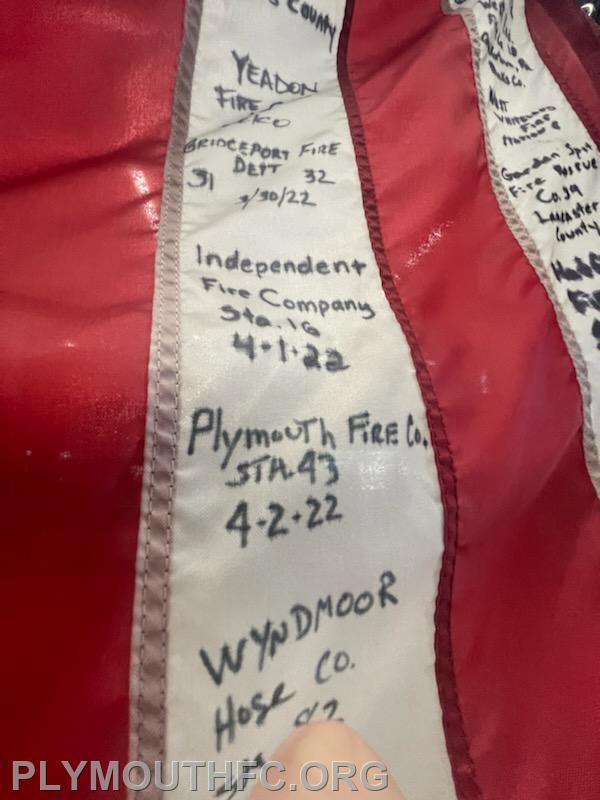 COUNTY
YEADON
FIRE
BRIDGEPORT FIRE
DEPT
31 32
3/30/22
Independent
Fire Company
Sta. 16
4-1-22
Plymouth FIRE Co.
STA. 43
4-2-22
WYNDMOOR
Hose Co.
Garden Spot
Fire Rescue
Co. 39
Lancaster
County
PLYMOUTHFC.ORG